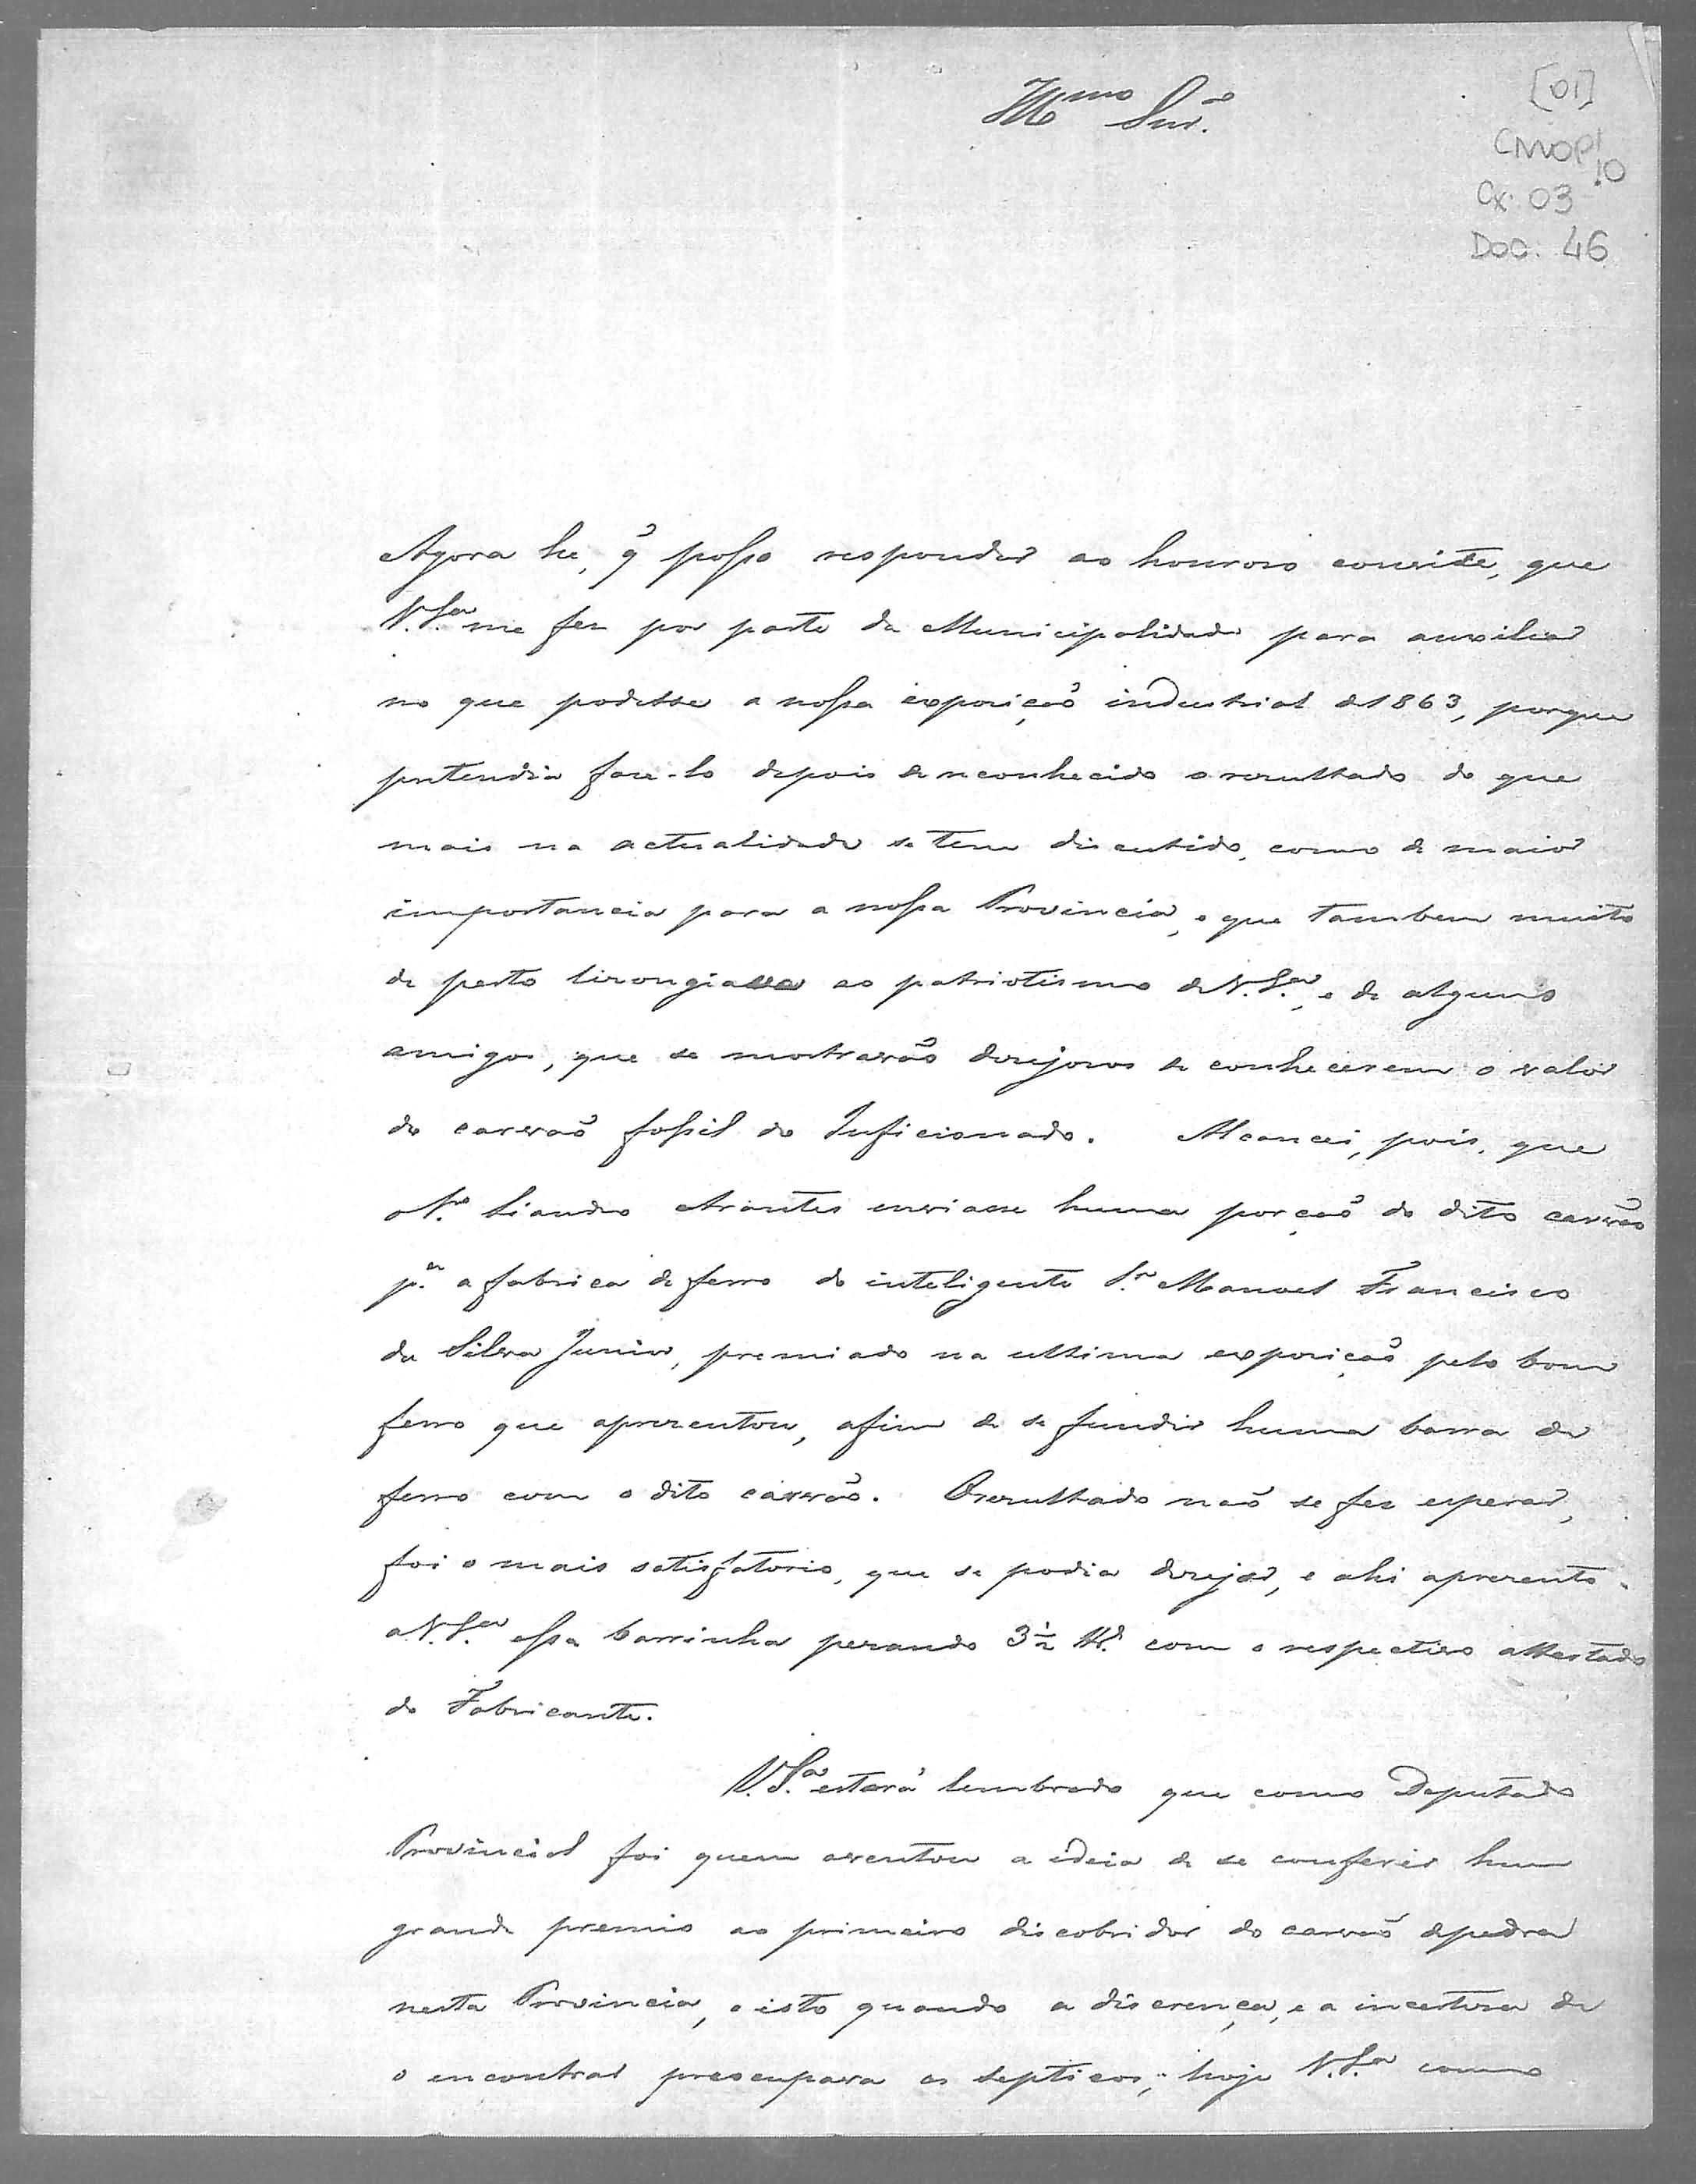 Illmo Snr.
[01]
CMOP
10
Cx. 03
Doc. 46
Agora he, q̃ posso responder ao honroso convite, que
V. Sa. me fez por parte da Municipalidade para auxiliar
no que podesse a nossa exposição industrial de 1863, porque
pretendia faze-lo depois de reconhecido o resultado do que
mais na actualidade se tem discutido, como de maior
importancia para a nossa Provincia, e que tambem muito
de perto lisongiava ao patriotismo de V. Sa., e de alguns
amigos, que se mostravão dezejosos de conhecerem o valor
do carvão fossil do Inficionado. Alcancei, pois, que
o Sr. Liandro Arantes enviasse huma porção do dito carvão
pa. a fabrica de ferro do inteligente Sr. Manoel Francisco
da Silva Junior, premiado na ultima exposição pelo bom
ferro que aprezentou, afim de se fundir huma barra de
ferro com o dito carvão. O rezultado não se fez esperar,
foi o mais satisfatorio, que se podia dezejar, e ahi aprezento
a V. Sa. essa barrinha pezando 3½ lb. com o respectivo attestado
do Fabricante.
V. Sa. estará lembrado que como Deputado
Provincial foi quem aventou a ideia de se conferir hum
grande premio ao primeiro discobridor do carvão de pedra
nesta Provincia, e isto quando a discrença, e a incerteza de
o encontrar preocupava os septicos; hoje V. Sa. como